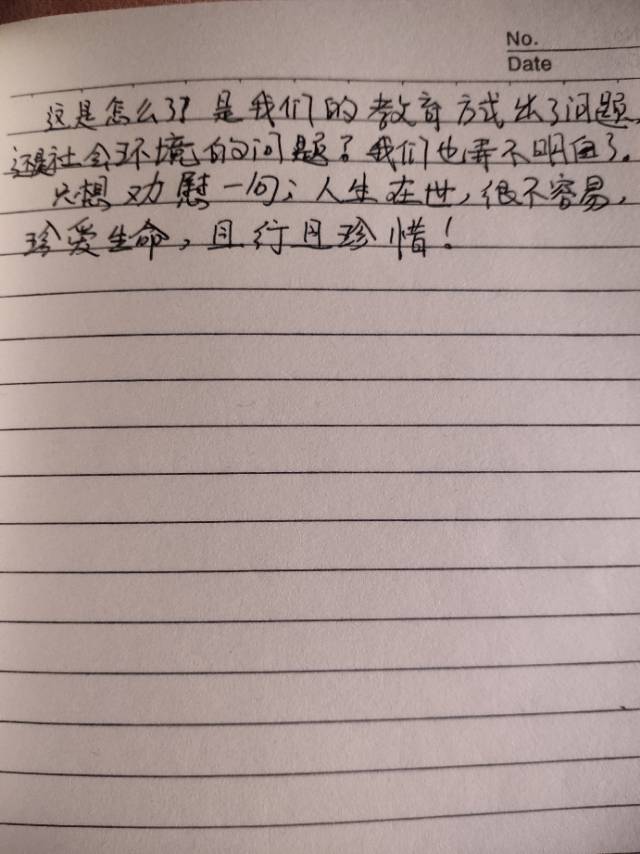 No.
Date
这是怎么了？是我们的教育方式出了问题，
还是社会环境的问题？我们也弄不明白了。
只想劝慰一句；人生在世，很不容易，
珍爱生命，且行且珍惜！